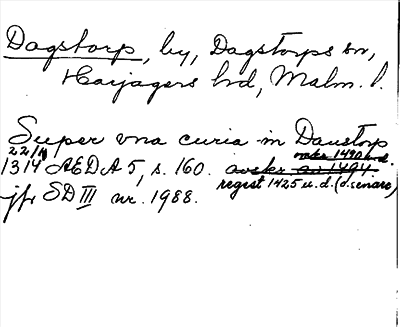 Dagstorp, by, Dagstorps sn,
Harjagers hd, Malm. l.
Super vna curia in Daustorp
22/11 avskr 1490 u.d.
1314 AEDA 5, s. 160. avskr av 1494.
regest 1425 u.d. (d.senare)
jfr SD III nr. 1988.